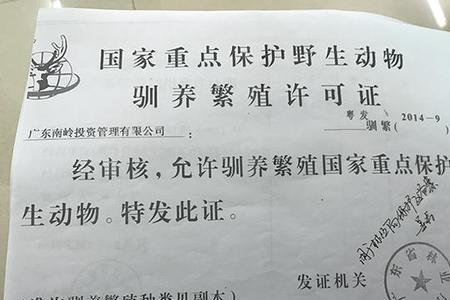 国家重点保护野生动物
驯养繁殖许可证
粤 发
驯繁( 2014-9
广东南岭投资管理有限公司：
经审核，允许驯养繁殖国家重点保护
生动物。特发此证。
发证机关
东省林业
准许驯养繁殖种类见副本）